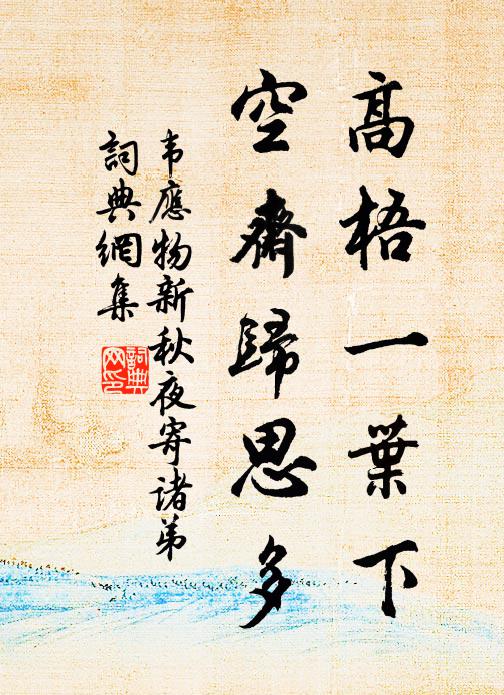 高梧一葉下
空齋歸思多
韦應物新秋夜寄諸弟
詞典網集
詞典网印